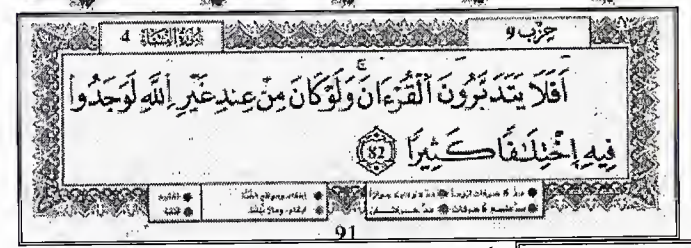 حِزْب 9
سُورَةُ النِّسَاء 4
اَفَلَا يَتَدَبَّرُونَ اَلْقُرْءَانَۖ وَلَوْ كَانَ مِنْ عِندِ غَيْرِ اِللَّهِ لَوَجَدُواْ
فِيهِ اِخْتِلَٰفًا كَثِيرًا 82
91